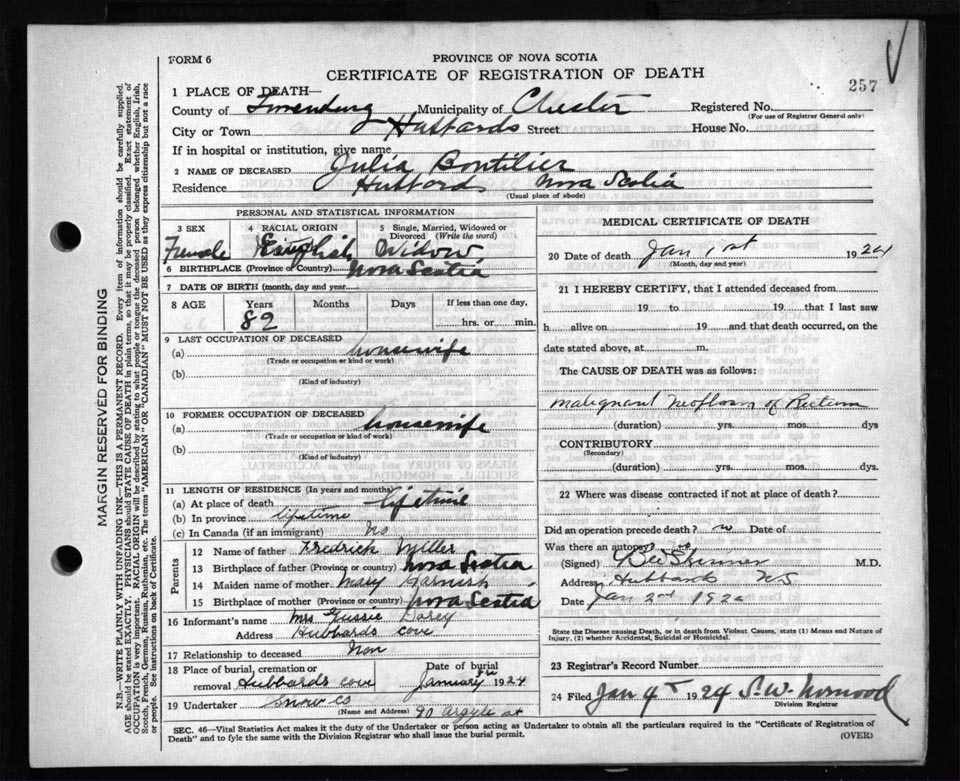 FORM 6
PROVINCE OF NOVA SCOTIA
CERTIFICATE OF REGISTRATION OF DEATH
257
1 PLACE OF DEATH—
County of Lunenburg Municipality of Chester Registered No.
(For use of Registrar General only)
City or Town Hubbards Street House No.
If in hospital or institution, give name
2 NAME OF DECEASED Julia Boutilier
Residence Hubbards Nova Scotia
(Usual place of abode)
PERSONAL AND STATISTICAL INFORMATION
3 SEX 4 RACIAL ORIGIN 5 Single, Married, Widowed or Divorced (Write the word)
Female English Widow
6 BIRTHPLACE (Province or Country) Nova Scotia
7 DATE OF BIRTH (month, day and year)
8 AGE Years Months Days If less than one day,
82 hrs. or min.
9 LAST OCCUPATION OF DECEASED
(a) housewife
(Trade or occupation or kind or work)
(b)
(Kind of industry)
10 FORMER OCCUPATION OF DECEASED
(a) housewife
(Trade or occupation or kind of work)
(b)
(Kind of industry)
11 LENGTH OF RESIDENCE (In years and months)
(a) At place of death lifetime
(b) In province lifetime
(c) In Canada (if an immigrant) No
Parents
12 Name of father Fredrick Miller
13 Birthplace of father (Province or country) Nova Scotia
14 Maiden name of mother Mary Garnish
15 Birthplace of mother (Province or country) Nova Scotia
16 Informant's name Mrs Gussie Dorey
Address Hubbards Cove
17 Relationship to deceased Non
18 Place of burial, cremation or removal Hubbards Cove Date of burial January 1924
19 Undertaker Snow Co
(Name and Address) 90 Argyle st
MEDICAL CERTIFICATE OF DEATH
20 Date of death Jan 1st 1924
(Month, day and year)
21 I HEREBY CERTIFY, that I attended deceased from
19 to 19 that I last saw
h alive on 19 and that death occurred, on the
date stated above, at m.
The CAUSE OF DEATH was as follows:
malignant neoplasm of Rectum
(duration) yrs. mos. dys
CONTRIBUTORY
(Secondary)
(duration) yrs. mos. dys.
22 Where was disease contracted if not at place of death?
Did an operation precede death? no Date of
Was there an autopsy no
(Signed) Skinner M.D.
Address Hubbards NS
Date Jan 2nd 192
State the Disease causing Death, or in death from Violent Causes, state (1) Means and Nature of Injury, (2) whether Accidental, Suicidal or Homicidal.
23 Registrar's Record Number
24 Filed Jan 4 1924 S. W. Norwood
Division Registrar
SEC. 46—Vital Statistics Act makes it the duty of the Undertaker or person acting as Undertaker to obtain all the particulars required in the "Certificate of Registration of
Death" and to fyle the same with the Division Registrar who shall issue the burial permit.
(OVER)
MARGIN RESERVED FOR BINDING
N.B.—WRITE PLAINLY WITH UNFADING INK—THIS IS A PERMANENT RECORD. Every item of information should be carefully supplied.
AGE should be stated EXACTLY. PHYSICIANS should STATE CAUSE OF DEATH in plain terms, so that it may be properly classified. Exact statement of
OCCUPATION is very important. RACIAL ORIGIN will be described by stating to what people or tongue the deceased person belonged whether English, Irish,
Scotch, French, German, Russian, Ruthenian, etc. The terms "AMERICAN" OR "CANADIAN" MUST NOT BE USED as they express citizenship but not a race
or people. See instructions on back of Certificate.